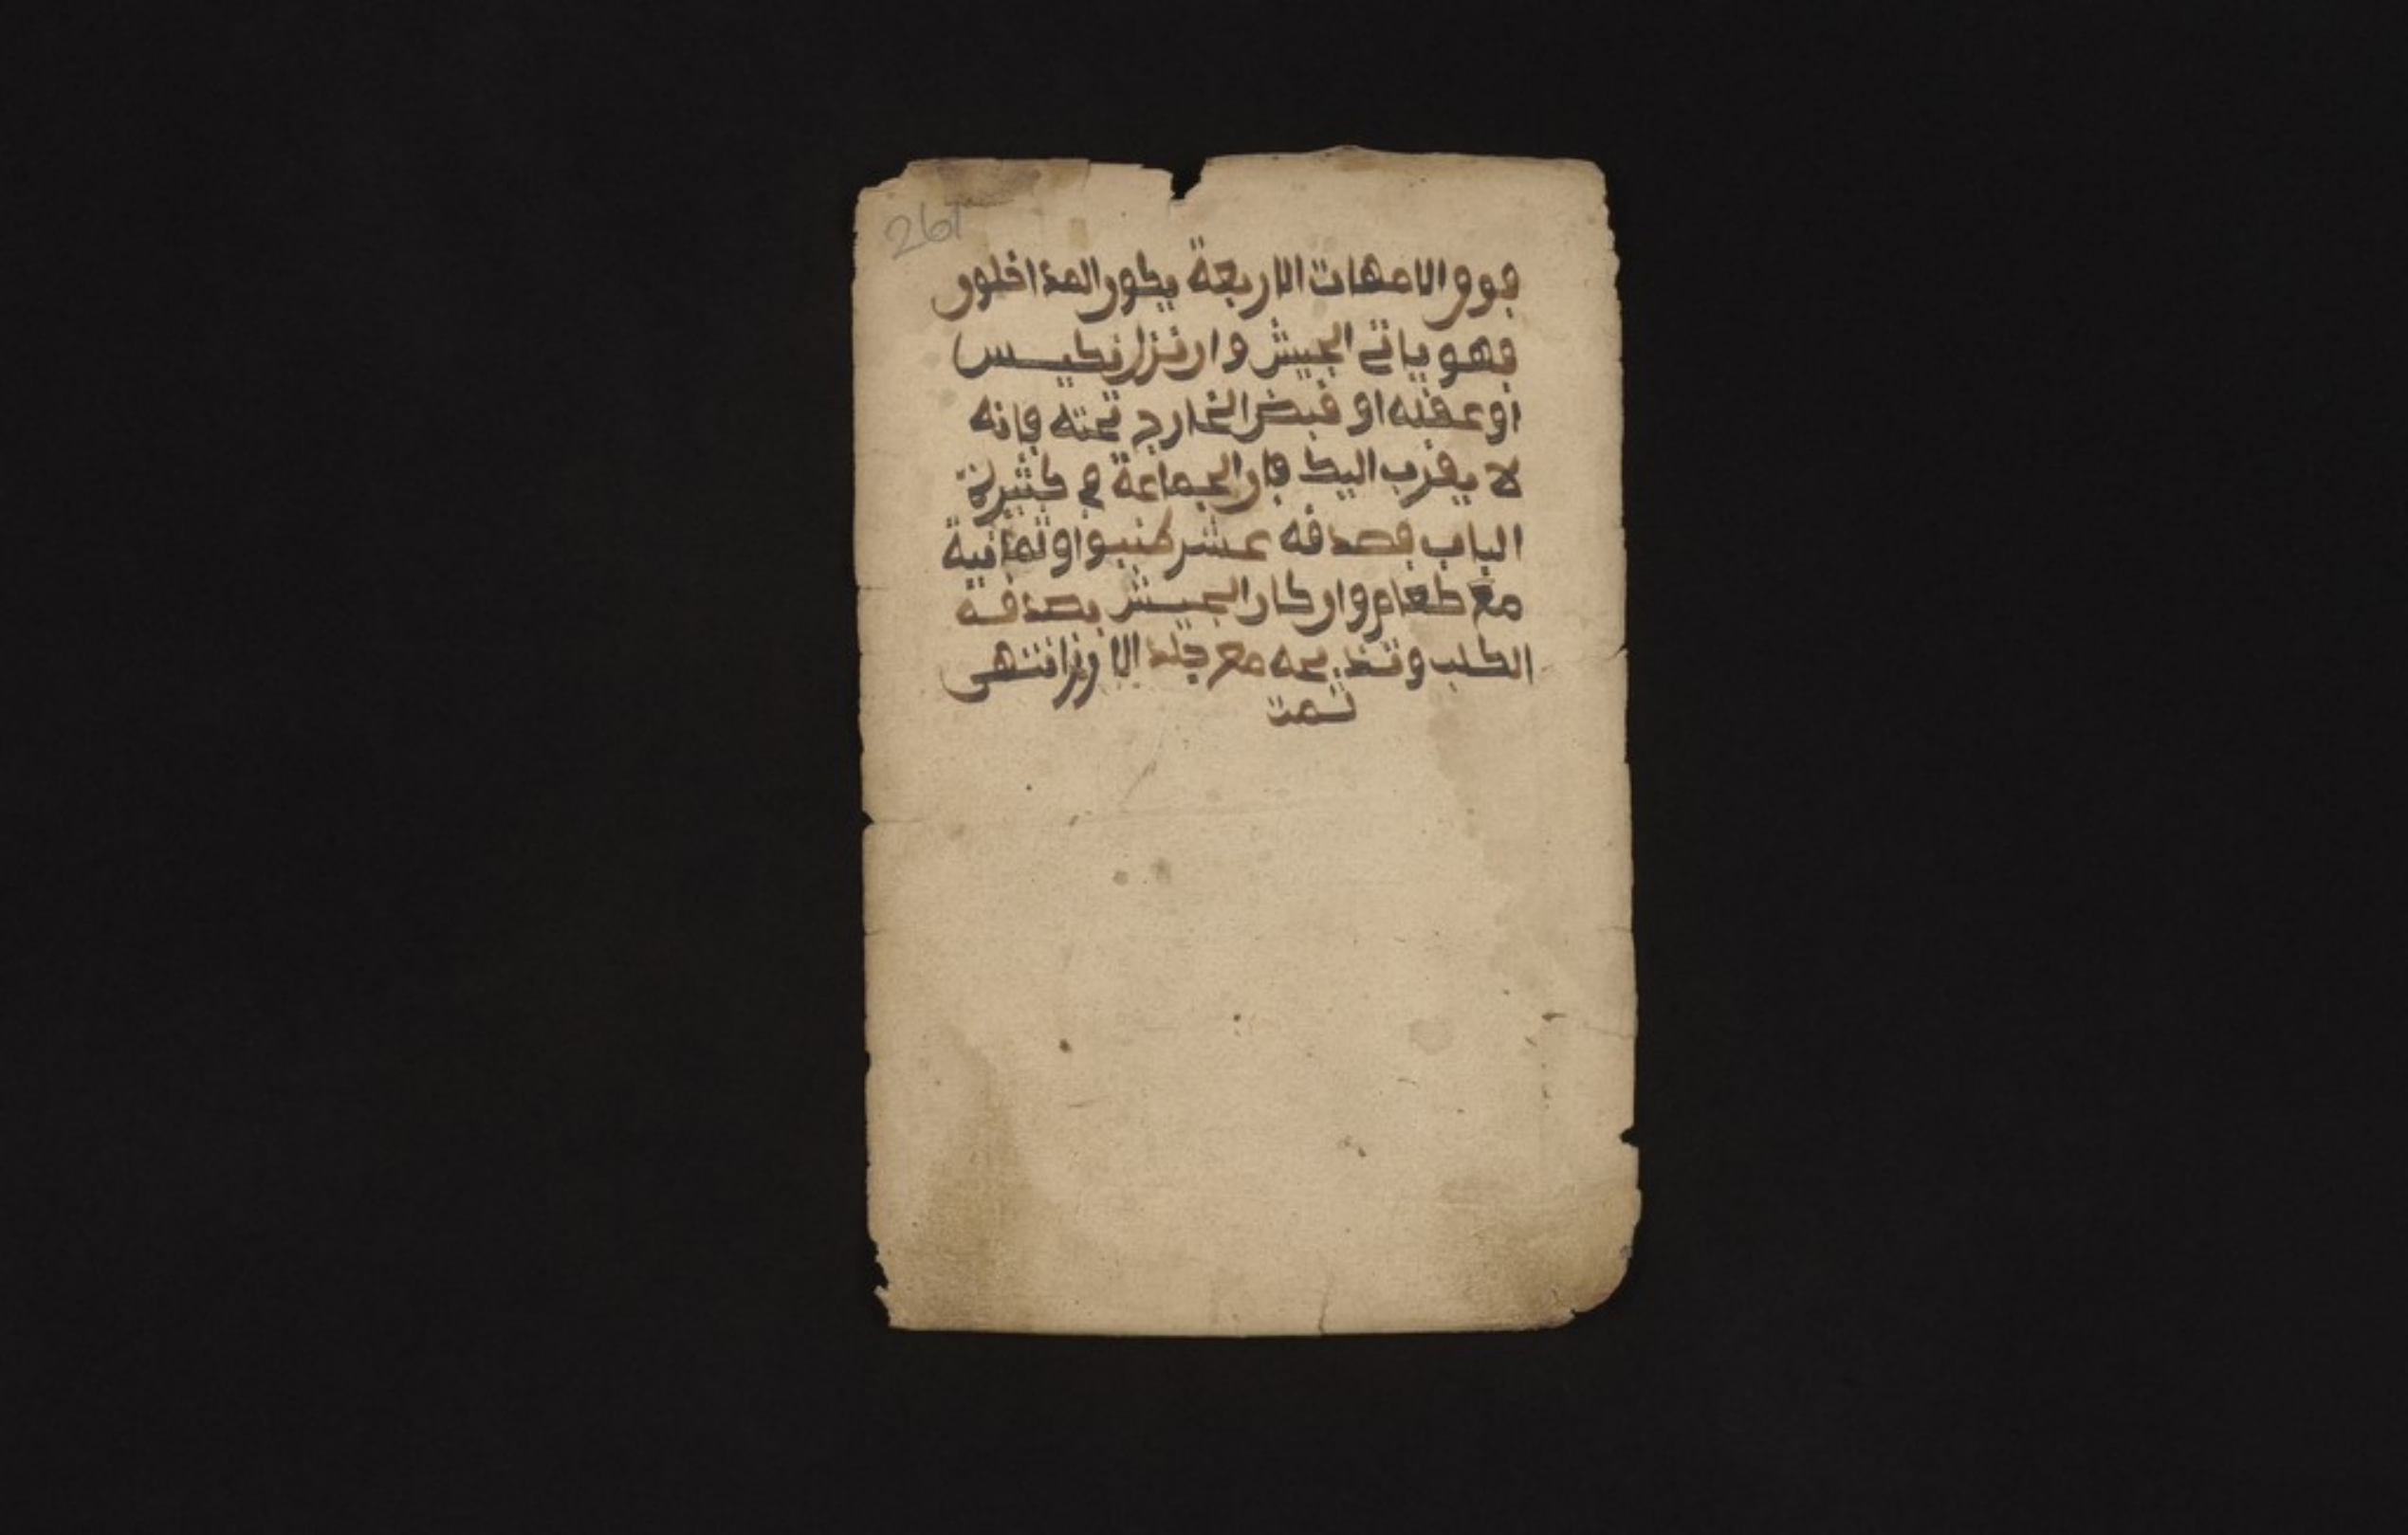 261
فوق الامهات الاربعة يكون المداخلون
فهو ياتي الجيش وان نزل نكيس
او عقله او قبض الخارج تحته فانه
لا يقرب اليك فان الجماعة في كثيرة
الباب فصدقه عشر كنبوا او ثمانية
مع طعام وان كان الجيش بصدقة
الكلب وتذبحه مع جلد الا وزانتهى
تمت